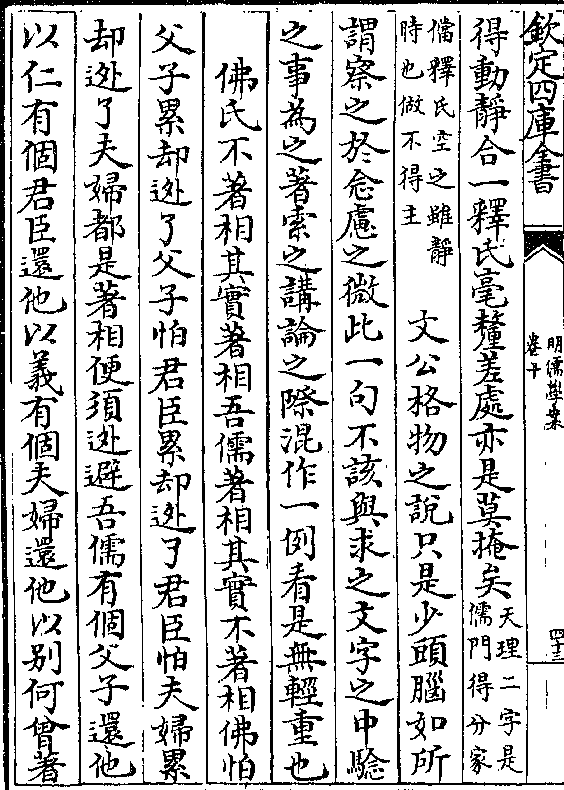 欽定四庫全書
明儒學案
卷十
四十三
得動靜合一釋氏毫釐差處亦是莫掩矣
天理二字是
儒門得分家
儅釋氏空之雖靜
時也做不得主
文公格物之說只是少頭腦如所
謂察之於念慮之微此一句不該與求之文字之中驗
之事為之著索之講論之際混作一例看是無輕重也
佛氏不著相其實著相吾儒著相其實不著相佛怕
父子累却迯了父子怕君臣累却迯了君臣怕夫婦累
却迯了夫婦都是著相便須迯避吾儒有個父子還他
以仁有個君臣還他以義有個夫婦還他以别何曾著